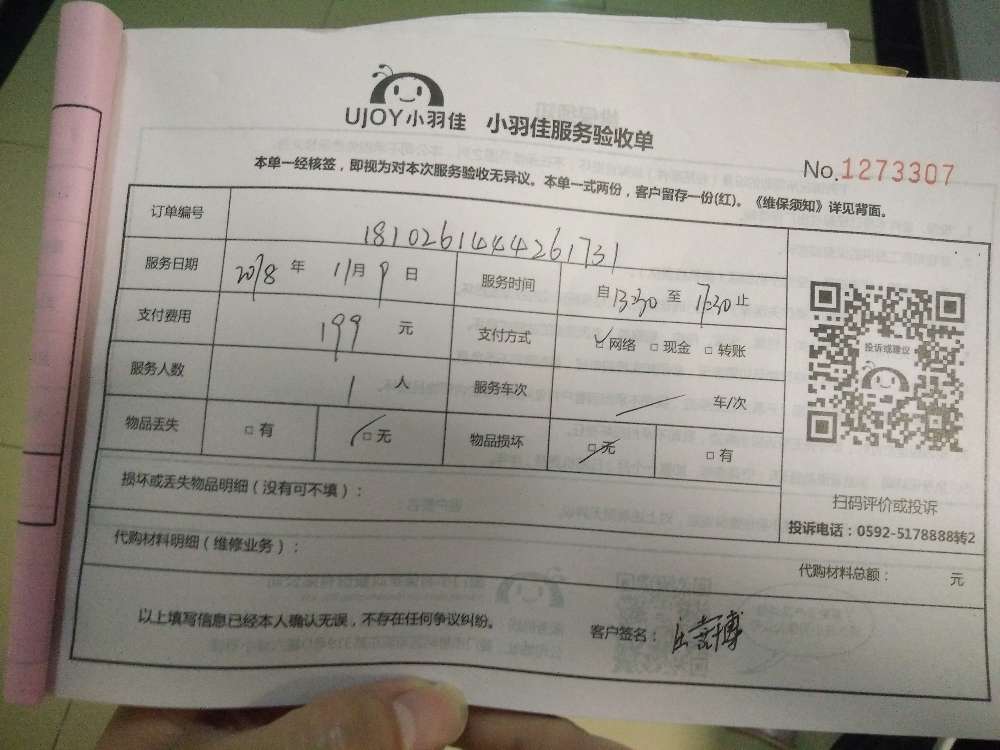 UJOY小羽佳 小羽佳服务验收单
No.1273307
本单一经核签，即视为对本次服务验收无异议。本单一式两份，客户留存一份(红)。《维保须知》详见背面。
订单编号 1810261444261731
服务日期 2018 年 11月 9 日 服务时间 自13:30 至 17:30 止
支付费用 199 元 支付方式 网络 □ 现金 □ 转账
服务人数 1 人 服务车次 车/次
物品丢失 □ 有 □ 无 物品损坏 □ 无 □ 有
投诉或建议
扫码评价或投诉
投诉电话：0592-5178888转2
损坏或丢失物品明细（没有可不填）：
代购材料明细（维修业务）：
代购材料总额： 元
以上填写信息已经本人确认无误，不存在任何争议纠纷。
客户签名：